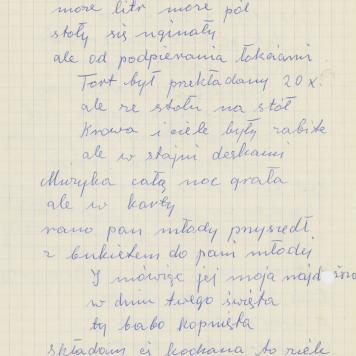 może litr może pół
stoły się uginały
ale od podpierania łokciami
Tort był przekładany 20 x.
ale ze stołu na stół
Krowa i ciele były zabite
ale w stajni deskami
Muzyka całą noc grała
ale w karty
rano pan młody przyszedł
z bukietem do pani młodej
I mówiąc jej moja najdroższa
w dniu twego święta
ty babo kopnięta
składam ci kochana to ziele